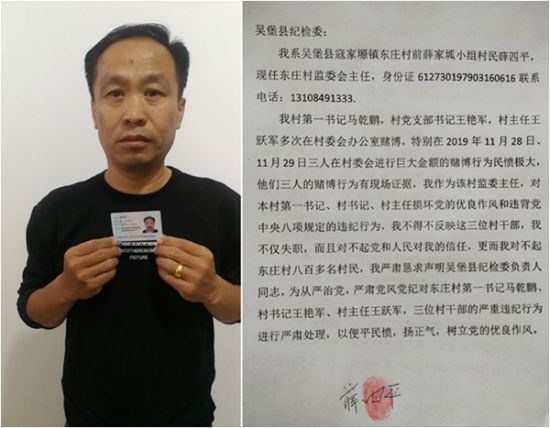 THEM.KNOW.NOW
吴堡县纪检委:
我系吴堡县寇家塬镇东庄村前薛家坬小组村民薛四平,
现任东庄村监委会主任，身份证 612730197903160616 联系
电话：13108491333.
我村第一书记马乾鹏，村党支部书记王艳军，村主任王
跃军多次在村委会办公室赌博，特别在 2019 年 11 月 28 日、
11 月 29 日三人在村委会进行巨大金额的赌博行为民愤极大，
他们三人的赌博行为有现场证据，我作为该村监委主任，对
本村第一书记、村书记、村主任损坏党的优良作风和违背党
中央八项规定的违纪行为，我不得不反映这三位村干部，我
不仅失职，而且对不起党和人民对我的信任，更而我对不起
东庄村八百多名村民，我严肃恳求声明吴堡县纪检委负责人
同志，为从严治党，严肃党风党纪对东庄村第一书记马乾鹏、
村书记王艳军、村主任王跃军，三位村干部的严重违纪行为
进行严肃处理，以便平民愤，扬正气，树立党的优良作风。
薛四平